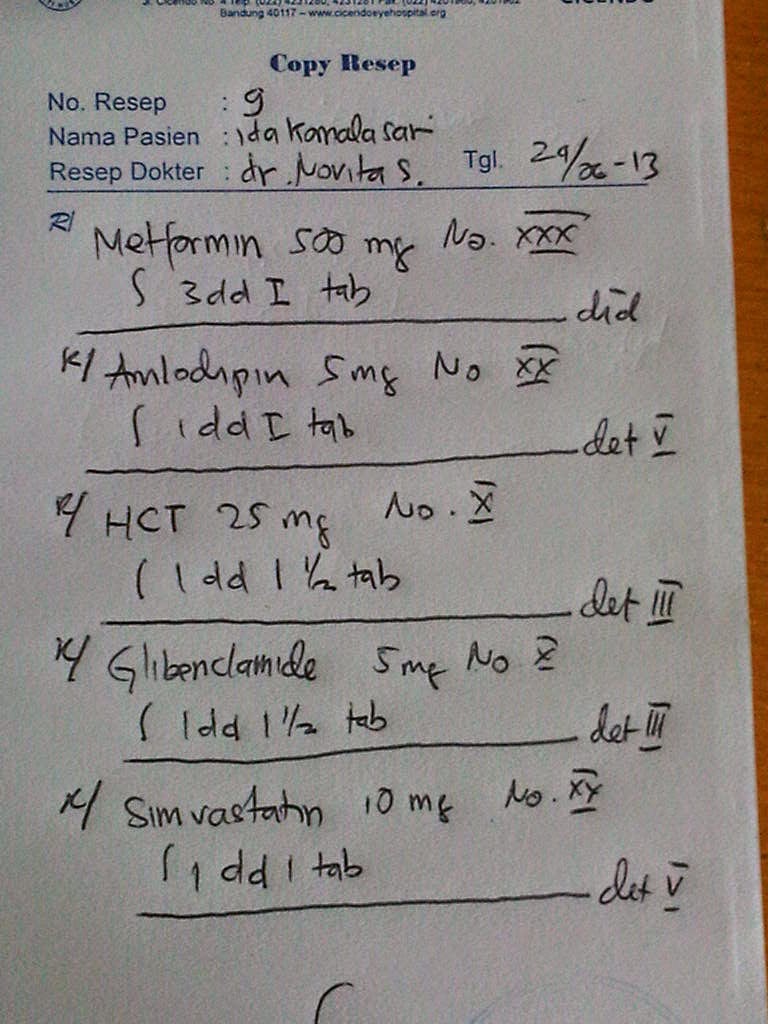 Bandung 40117 – www.cicendoeyehospital.org
Copy Resep
No. Resep : 9
Nama Pasien : Ida Komala sari
Resep Dokter : dr. Novita S. Tgl. 29/ -13
R/ Metformin 500 mg No. XXX
S 3dd I tab
did
R/ Amlodipin 5 mg No XX
S 1dd I tab
det V
R/ HCT 25 mg No. X
S 1 dd 1 1/2 tab
det III
R/ Glibenclamide 5 mg No X
S 1dd 1 1/2 tab
det III
R/ Simvastatin 10 mg No. XX
S 1 dd 1 tab
det V